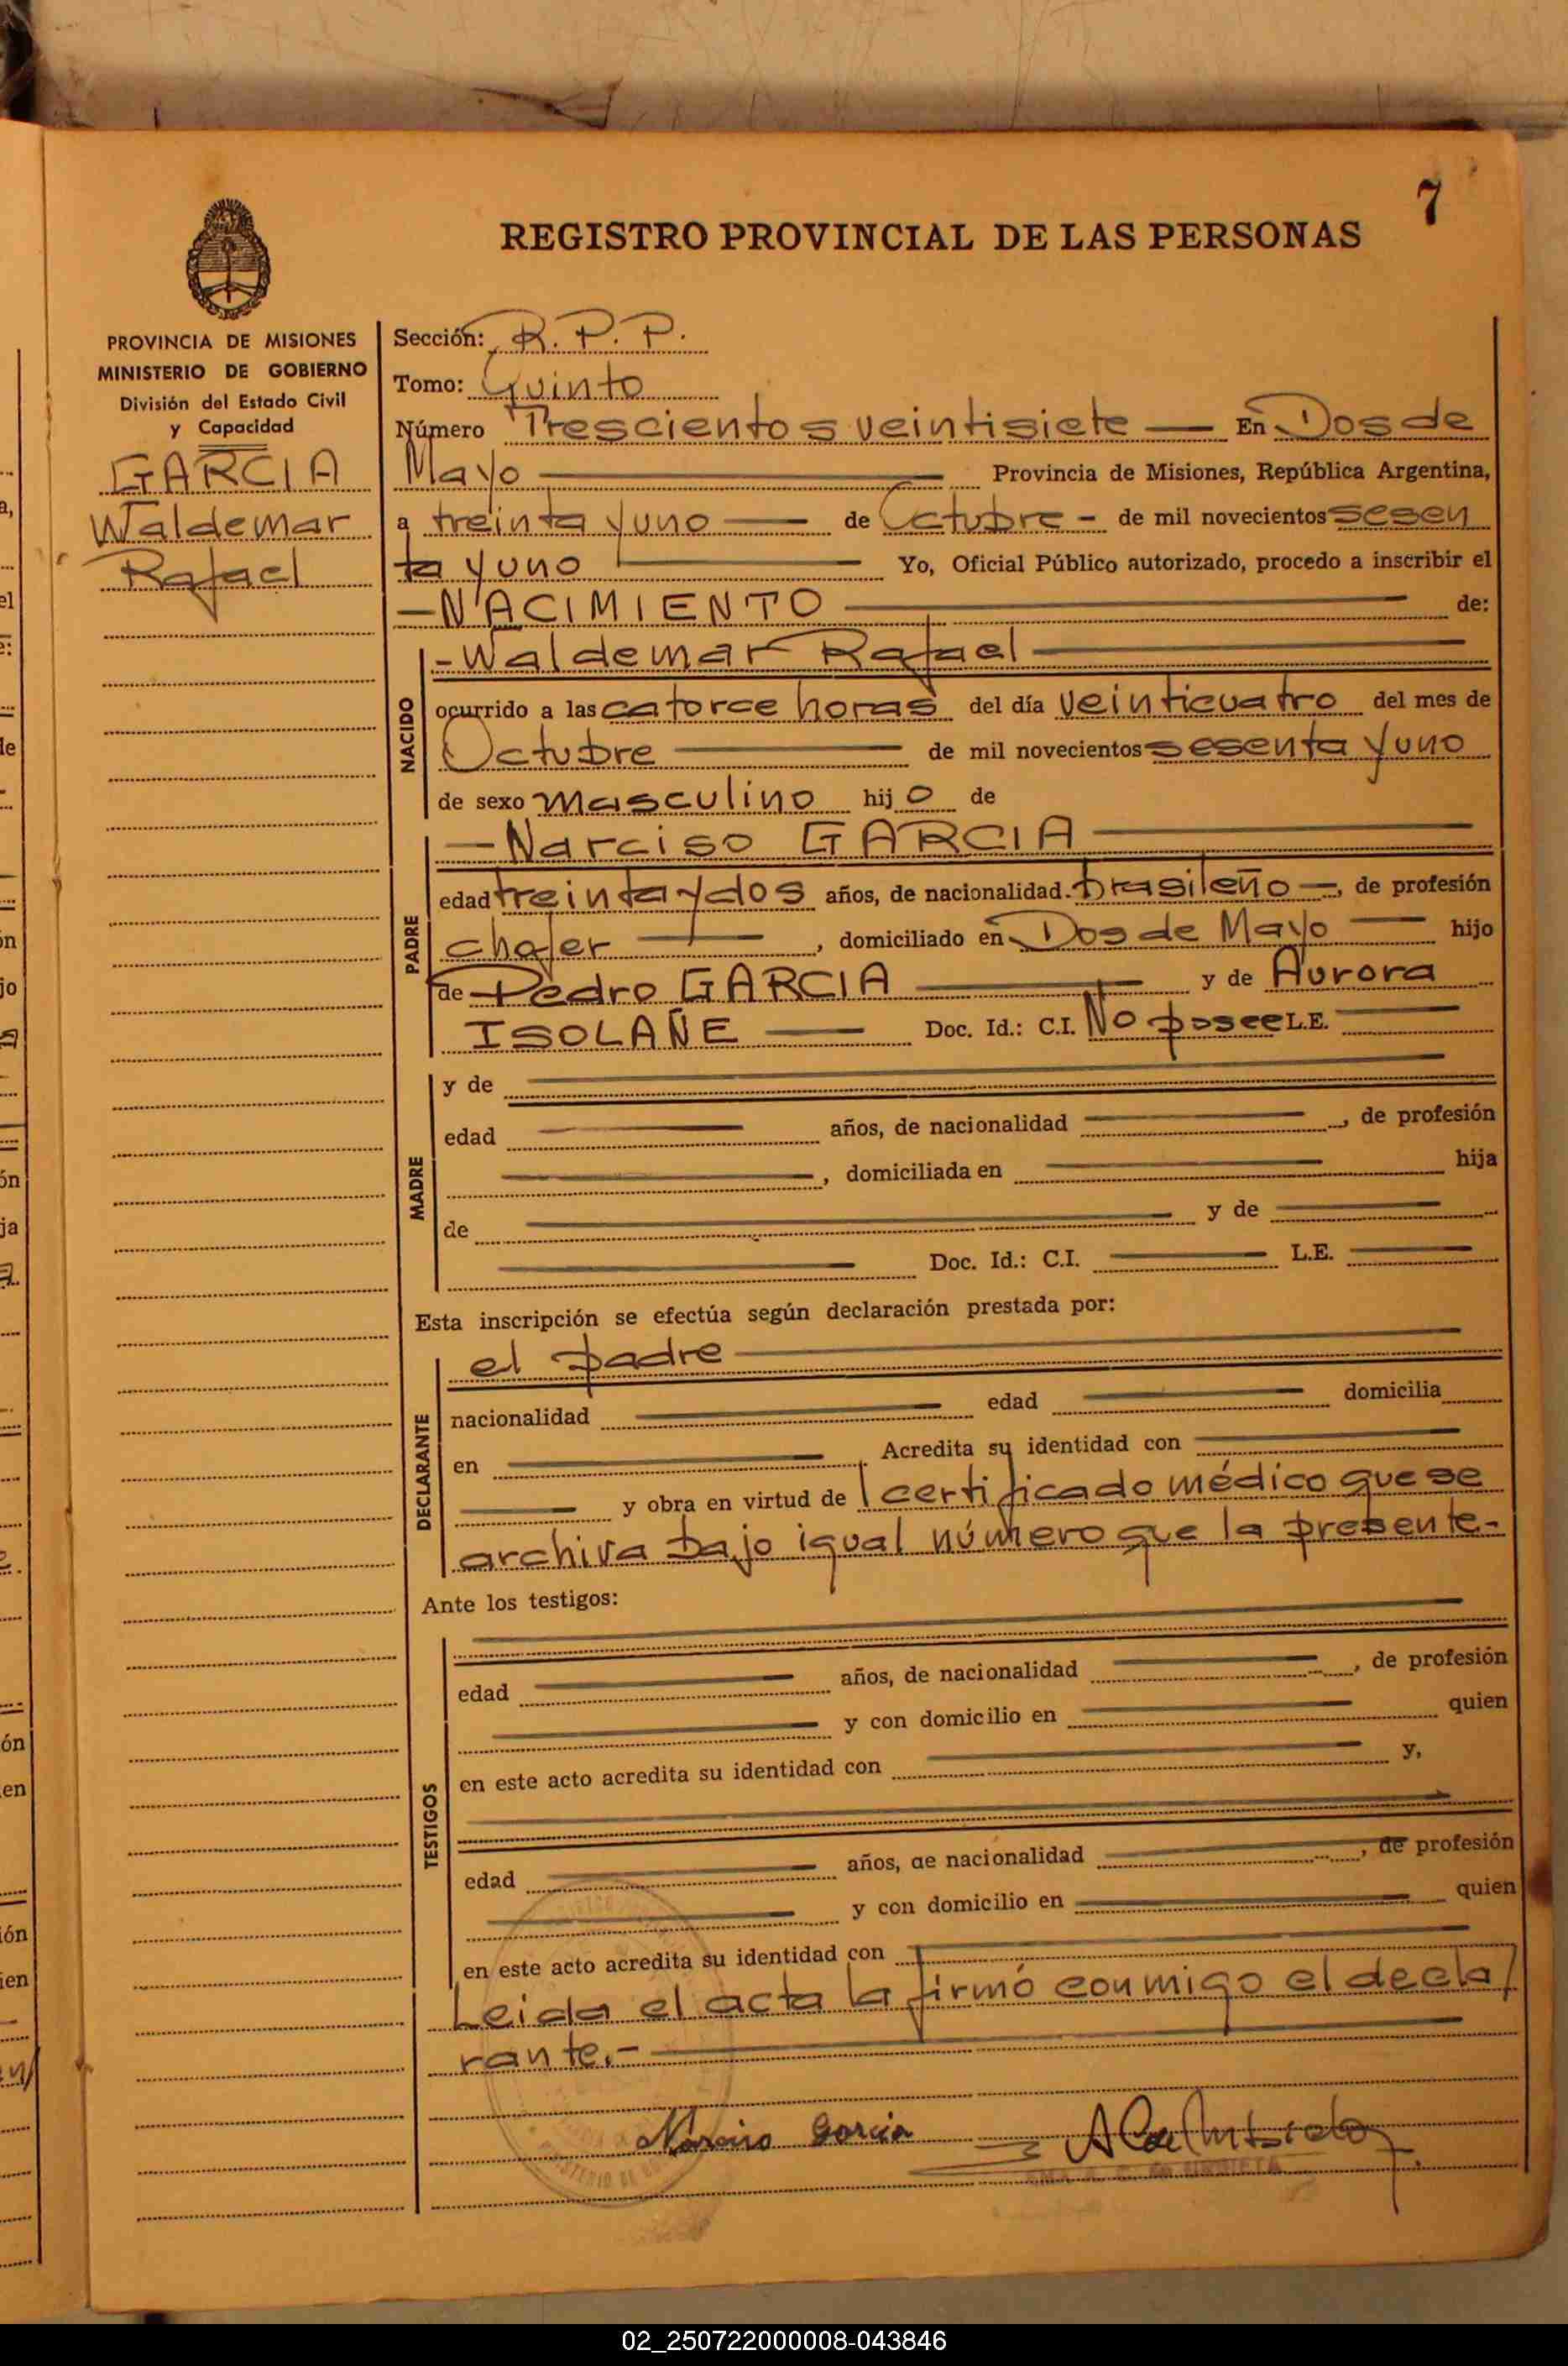 7
REGISTRO PROVINCIAL DE LAS PERSONAS
PROVINCIA DE MISIONES
MINISTERIO DE GOBIERNO
División del Estado Civil
y Capacidad
GARCIA
Waldemar
Rafael
Sección: R. P. P.
Tomo: Quinto
Número Trescientos veintisiete — En Dos de
Mayo — Provincia de Misiones, República Argentina,
a treinta y uno — de Octubre - de mil novecientos sesen
ta y uno — Yo, Oficial Público autorizado, procedo a inscribir el
— NACIMIENTO — de:
- Waldemar Rafael —
NACIDO
ocurrido a las catorce horas del día veinticuatro del mes de
Octubre — de mil novecientos sesenta y uno
de sexo masculino hijo de
— Narciso GARCIA —
PADRE
edad treinta y dos años, de nacionalidad brasileño —, de profesión
chofer —, domiciliado en Dos de Mayo — hijo
de Pedro GARCIA — y de Aurora
ISOLAÑE — Doc. Id.: C.I. No posee L.E. —
MADRE
y de —
edad — años, de nacionalidad —, de profesión
—, domiciliada en — hija
de — y de —
— Doc. Id.: C.I. — L.E. —
Esta inscripción se efectúa según declaración prestada por:
DECLARANTE
el padre —
nacionalidad — edad — domicilia
en — Acredita su identidad con —
— y obra en virtud de l certificado médico que se
archiva bajo igual número que la presente.-
Ante los testigos:
TESTIGOS
edad — años, de nacionalidad —, de profesión
— y con domicilio en — quien
en este acto acredita su identidad con — y,
edad — años, de nacionalidad —, de profesión
— y con domicilio en — quien
en este acto acredita su identidad con —
Leida el acta la firmó conmigo el decla/
rante.- —
Narciso Garcia
02_250722000008-043846